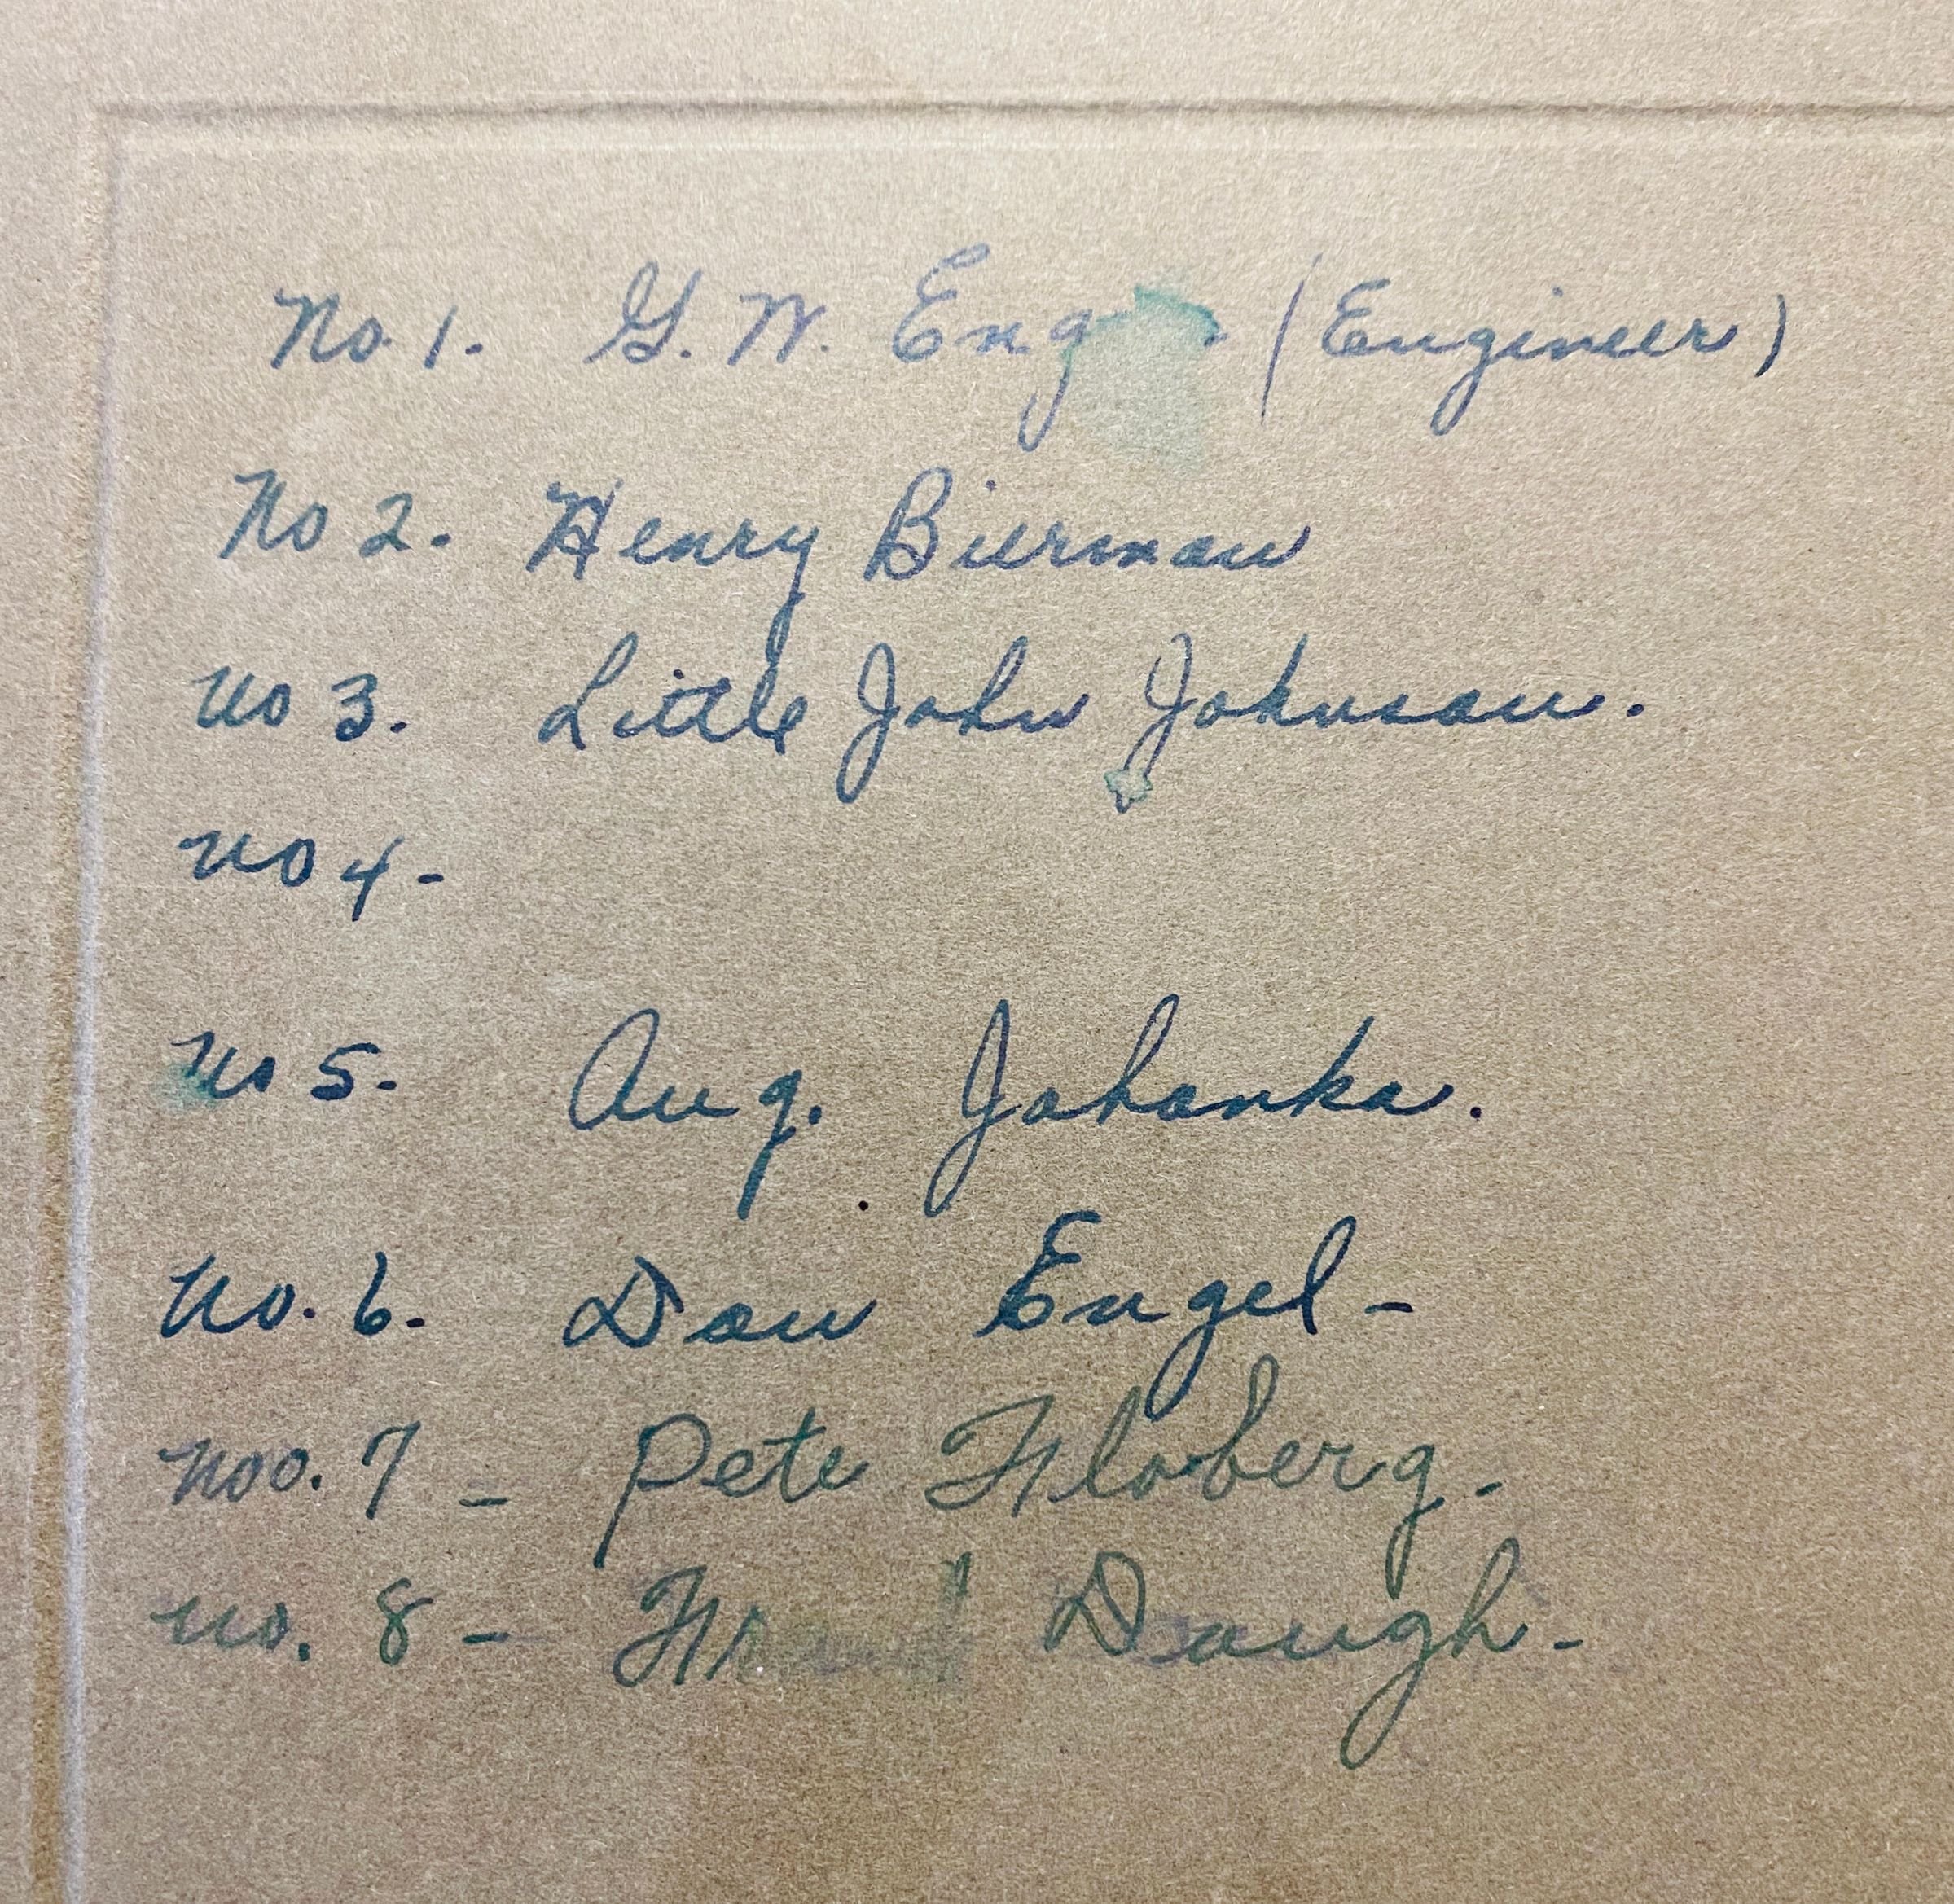 No. 1. G. W. Eng (Engineer)
No 2. Henry Bierman
No 3. Little John Johnson.
No 4-
No 5. Aug. Johanka.
No. 6. Dan Engel-
Noo. 7 - Pete Floberg.-
No. 8 - Daugh-